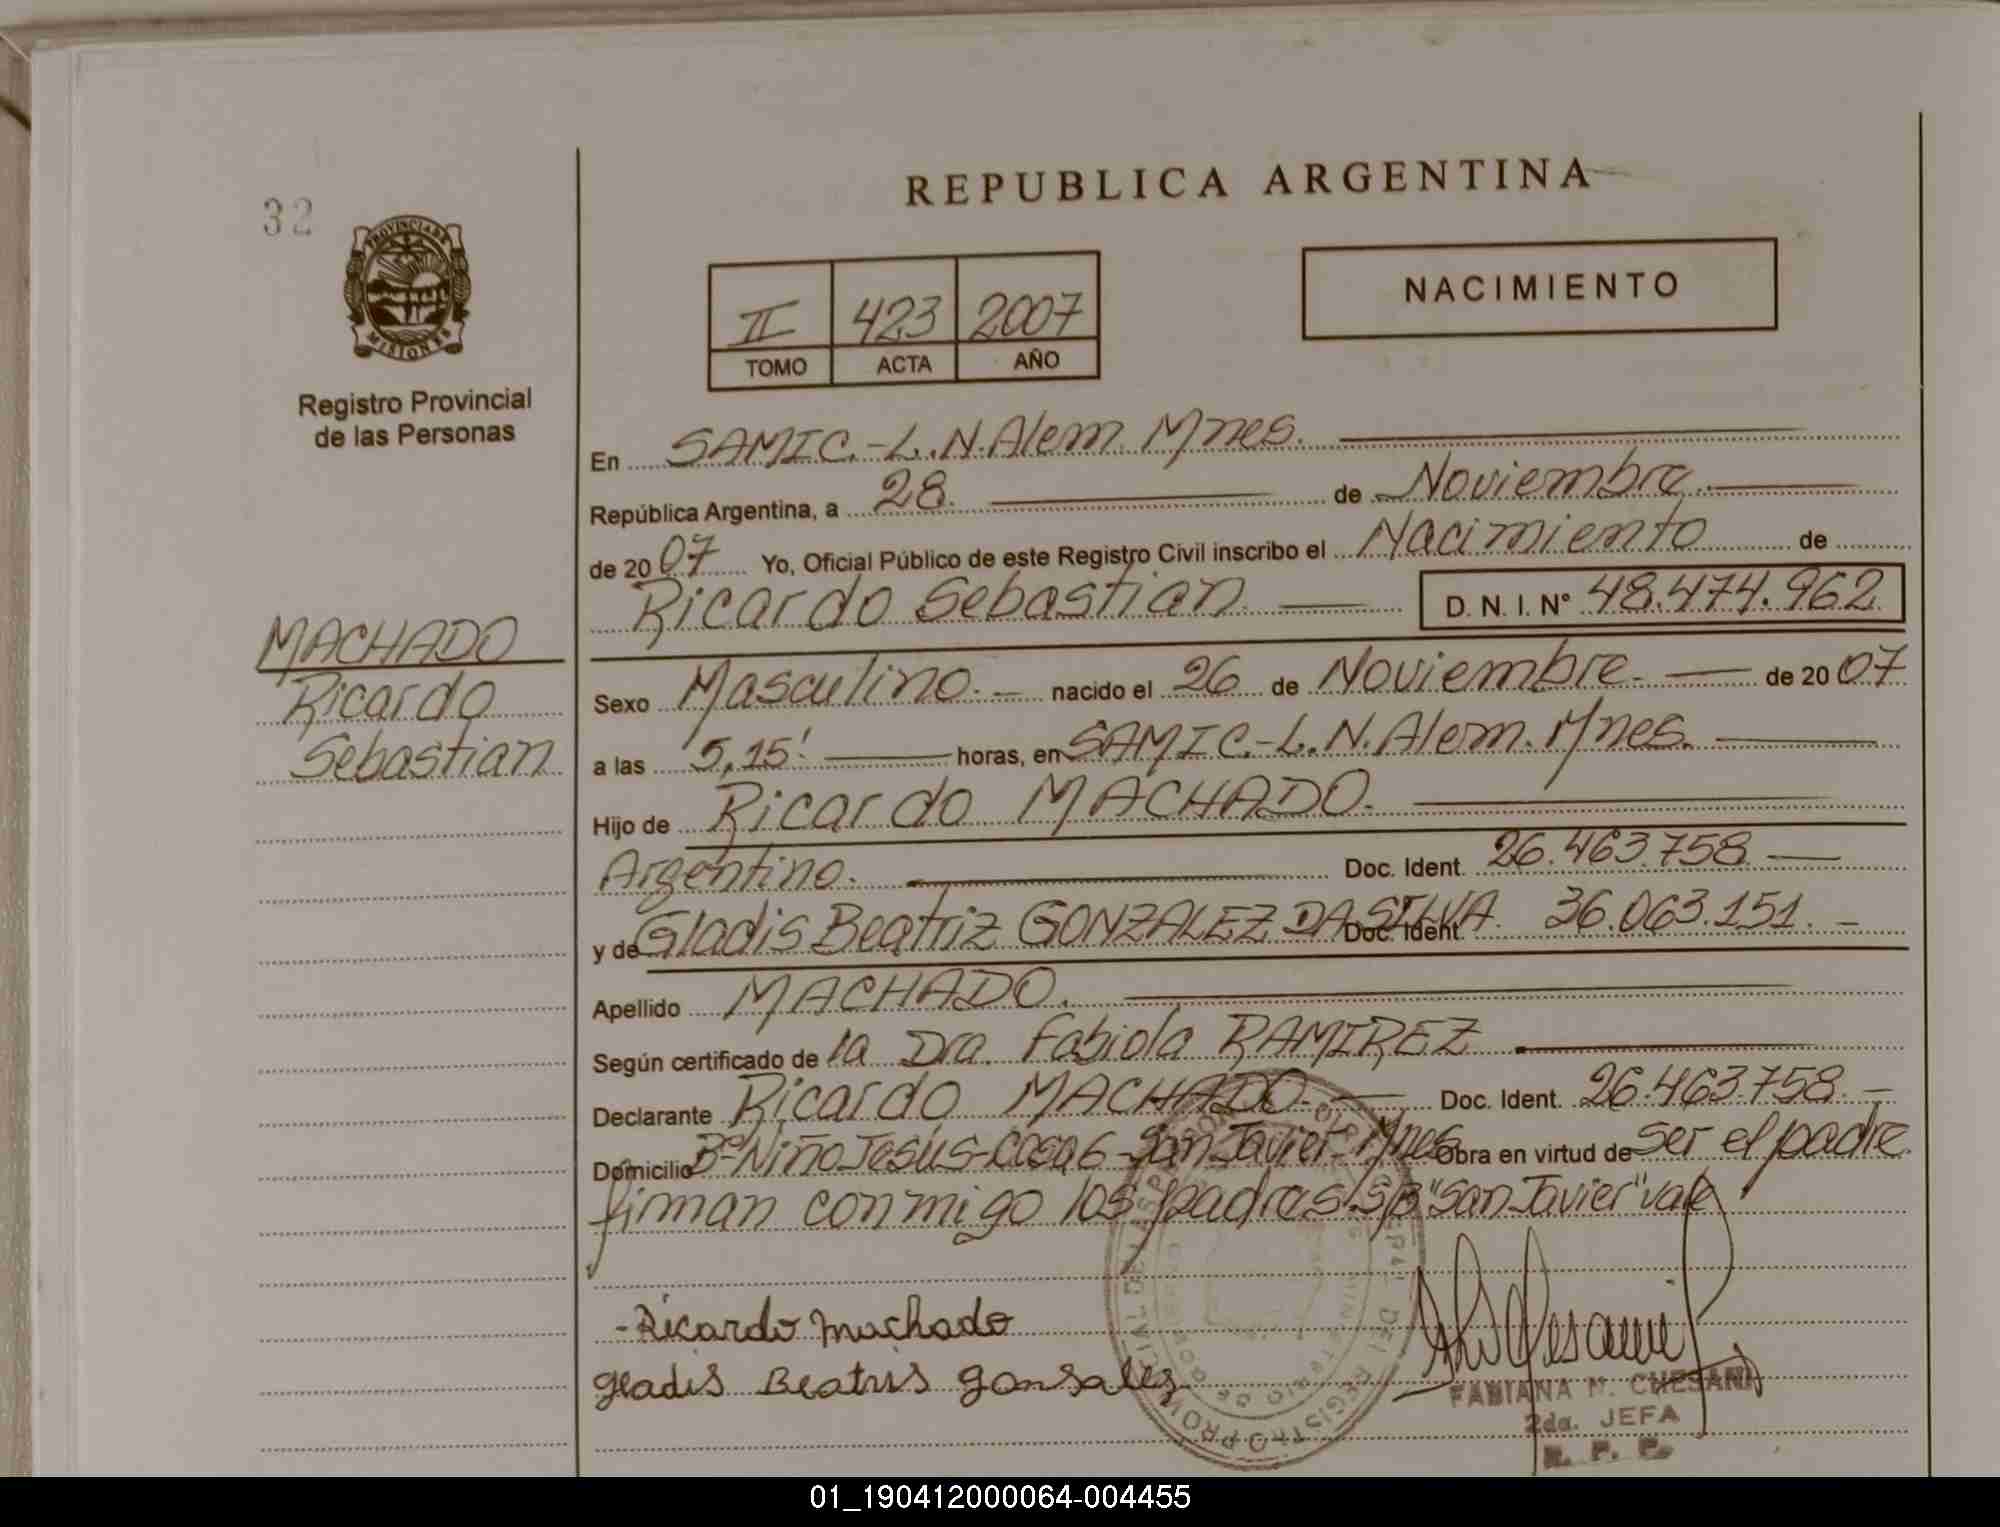 32
PROVINCIA DE
MISIONES
Registro Provincial
de las Personas
MACHADO
Ricardo
Sebastian
REPUBLICA ARGENTINA
II 423 2007
TOMO ACTA AÑO
NACIMIENTO
En SAMIC.-L.N.Alem. Mnes.
República Argentina, a 28. de Noviembre
de 2007 Yo, Oficial Público de este Registro Civil inscribo el Nacimiento de
Ricardo Sebastian D. N. I. N° 48.474.962
Sexo Masculino.- nacido el 26 de Noviembre.- de 2007
a las 5,15' horas, en SAMIC.-L.N.Alem. Mnes.
Hijo de Ricardo MACHADO.
Argentino. Doc. Ident. 26.463.758
y de Gladis Beatriz GONZALEZ DA SILVA Doc. Ident. 36.063.151.-
Apellido MACHADO.
Según certificado de la Dra. Fabiola RAMIREZ
Declarante Ricardo MACHADO.- Doc. Ident. 26.463.758.-
Domicilio B° Niño Jesús-casa 6-San Javier-Mnes Obra en virtud de ser el padre
firman conmigo los padres. S/B "San Javier" vale
-Ricardo machado
gladis Beatris gonsalez
FABIANA N. CHESANI
2da. JEFA
R. P. P.
01_190412000064-004455